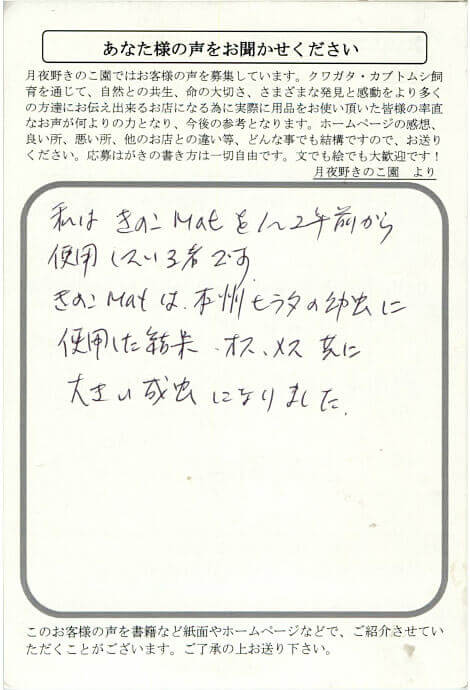 あなた様の声をお聞かせください
月夜野きのこ園ではお客様の声を募集しています。クワガタ・カブトムシ飼
育を通じて、自然との共生、命の大切さ、さまざまな発見と感動をより多く
の方達にお伝え出来るお店になる為に実際に用品をお使い頂いた皆様の率直
なお声が何よりの力となり、今後の参考となります。ホームページの感想、
良い所、悪い所、他のお店との違い等、どんな事でも結構ですので、お送り
ください。応募はがきの書き方は一切自由です。文でも絵でも大歓迎です！
月夜野きのこ園　より
私は きのこMatを1〜2年前から
使用している者です。
きのこMatは、本州ヒラタの幼虫に
使用した結果、オス、メス共に
大きい成虫になりました。
このお客様の声を書籍など紙面やホームページなどで、ご紹介させてい
ただくことがございます。ご了承の上お送り下さい。